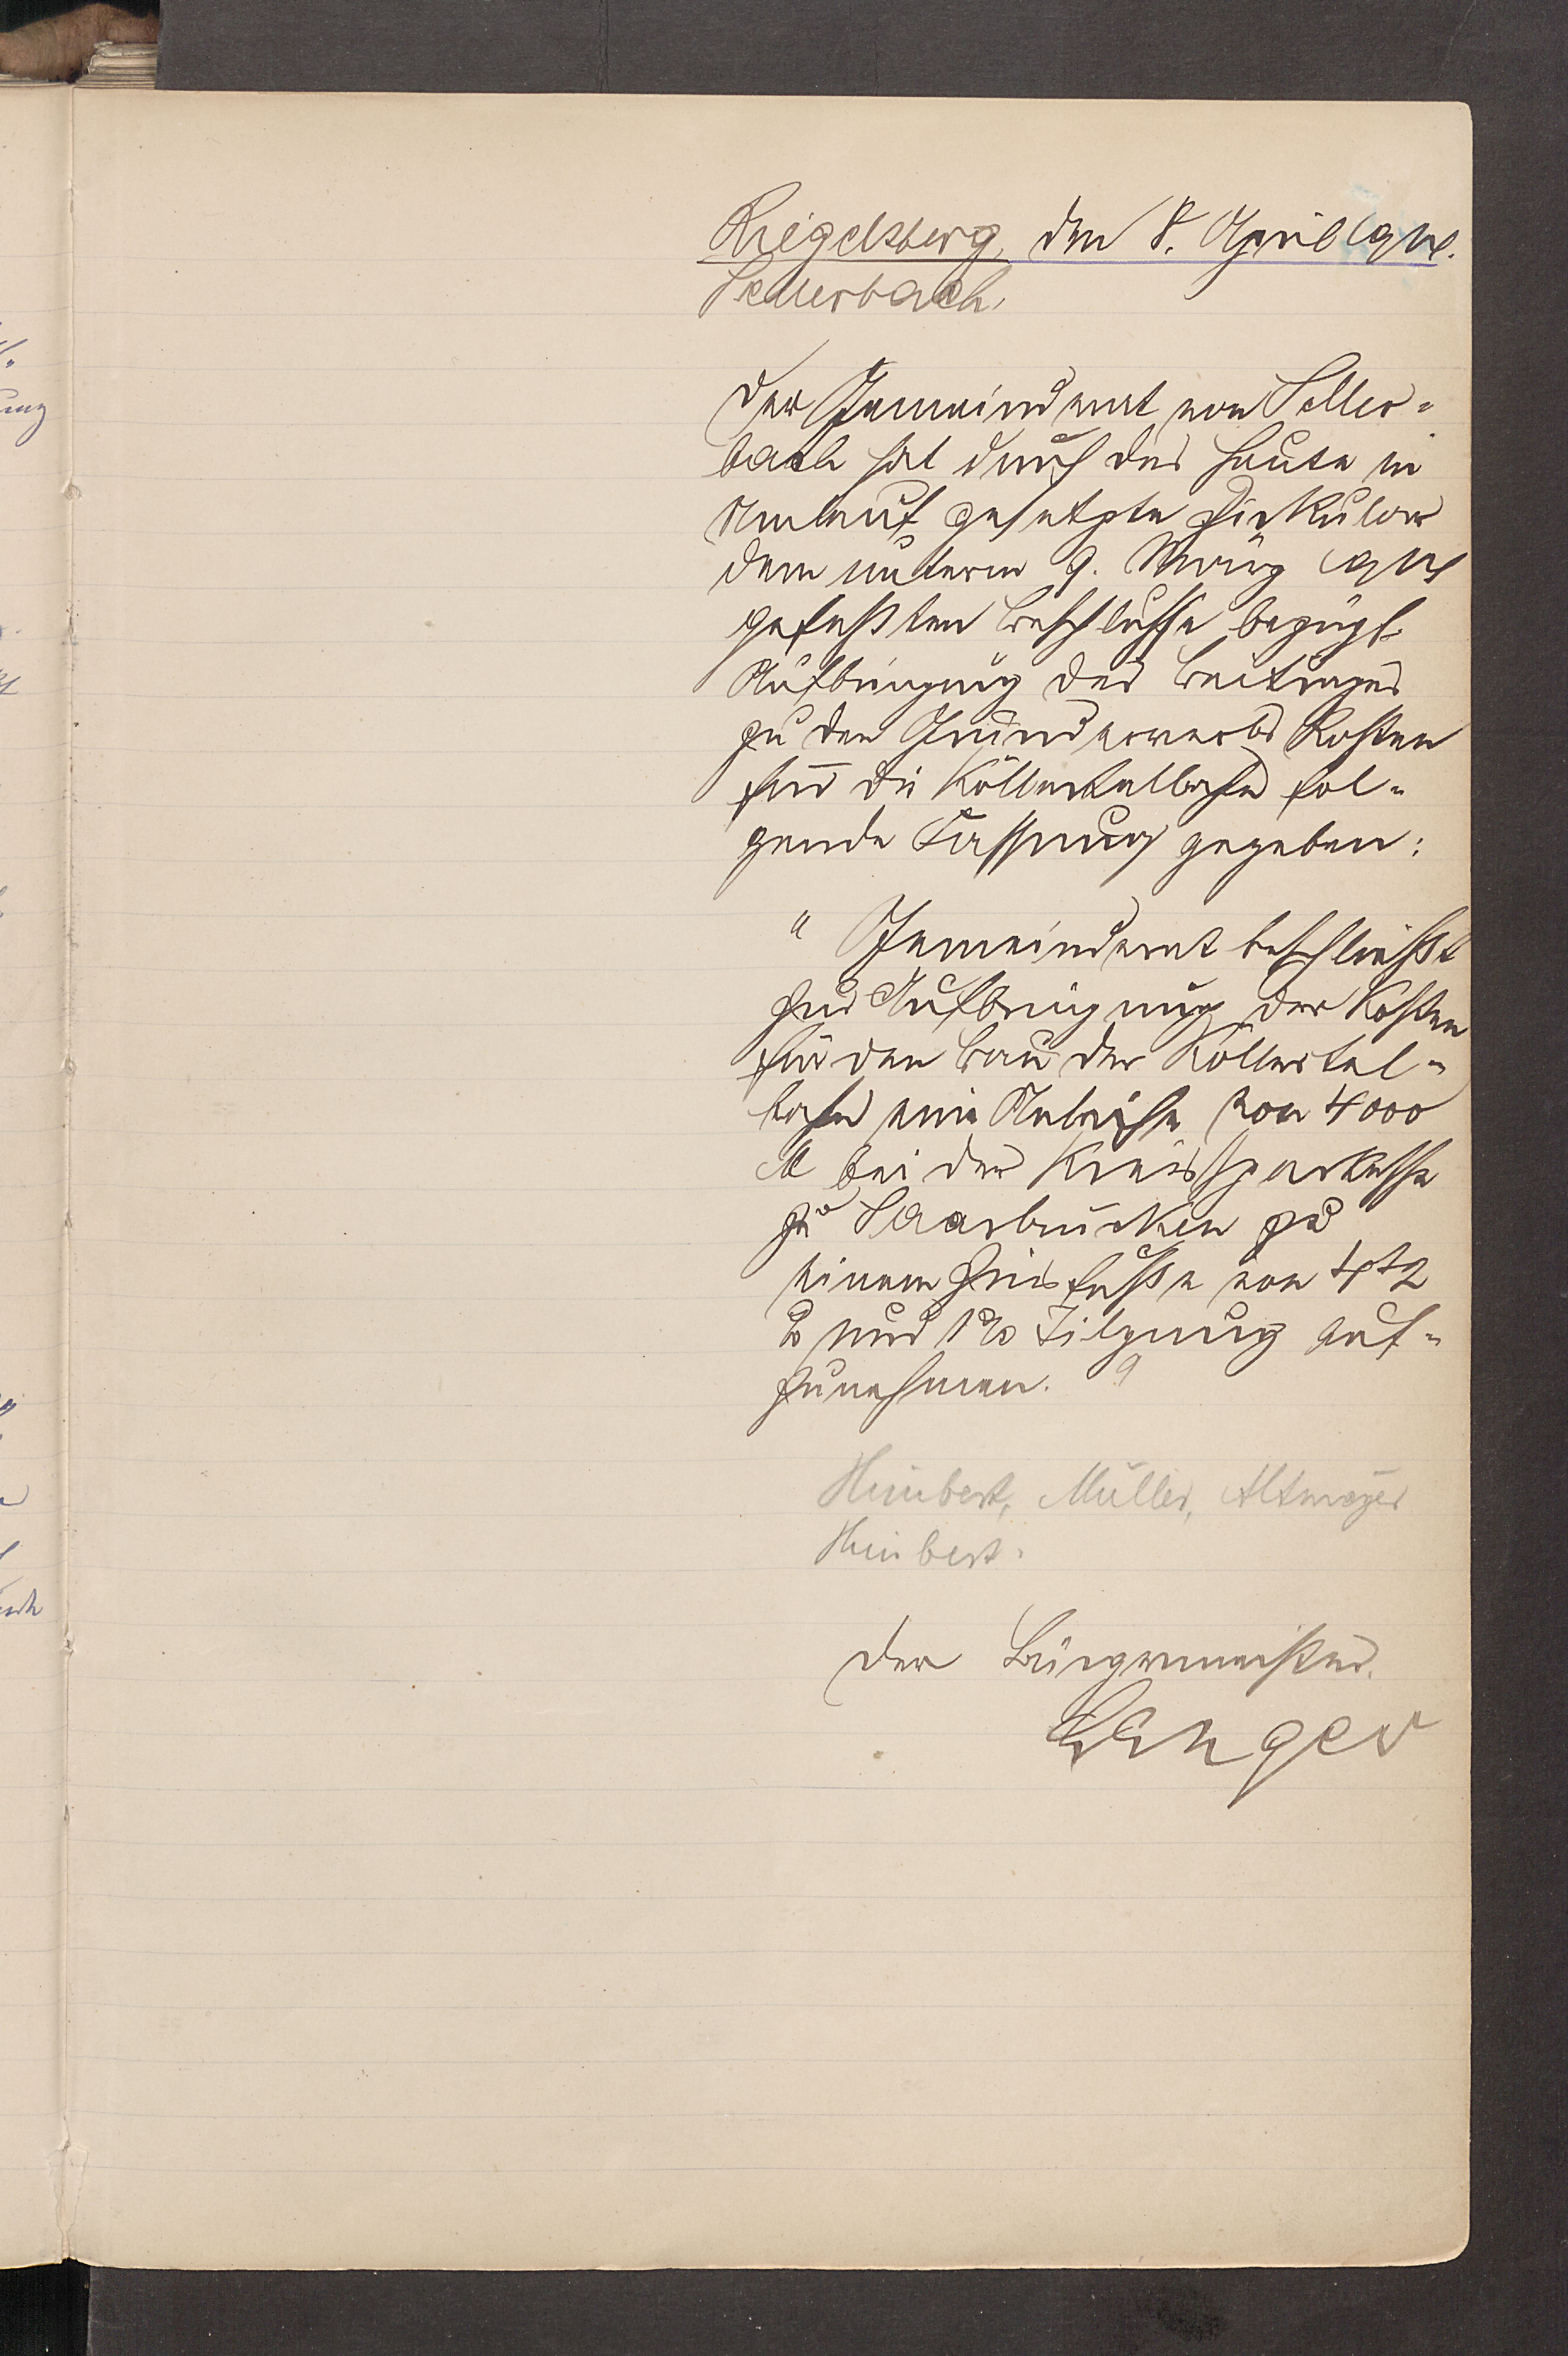 Riegelsberg, den 8. April 1904.
Sellerbach.
Der Gemeinderat von Seller-
bach hat durch das heute in
Umlauf gesetzte Zirkular
dem unterm 9. März 1904
gefaßten Beschlusse bezügl.
Aufbringung des Beitrages
zu den Grunderwerbs Kosten
für die Köllertalbahn fol-
gende Fassung gegeben:
"Gemeinderat beschließt
zur Aufbringung der Kosten
für den Bau der Köllertal-
bahn eine Anleihe von 4000
M bei der Kreissparkasse
zu Saarbrücken zu
einem Zinsfuße von
% und 1% Tilgung auf-
zunehmen."
Himbert, Müller, Altmeyer
Himbert.
Der Bürgermeister.